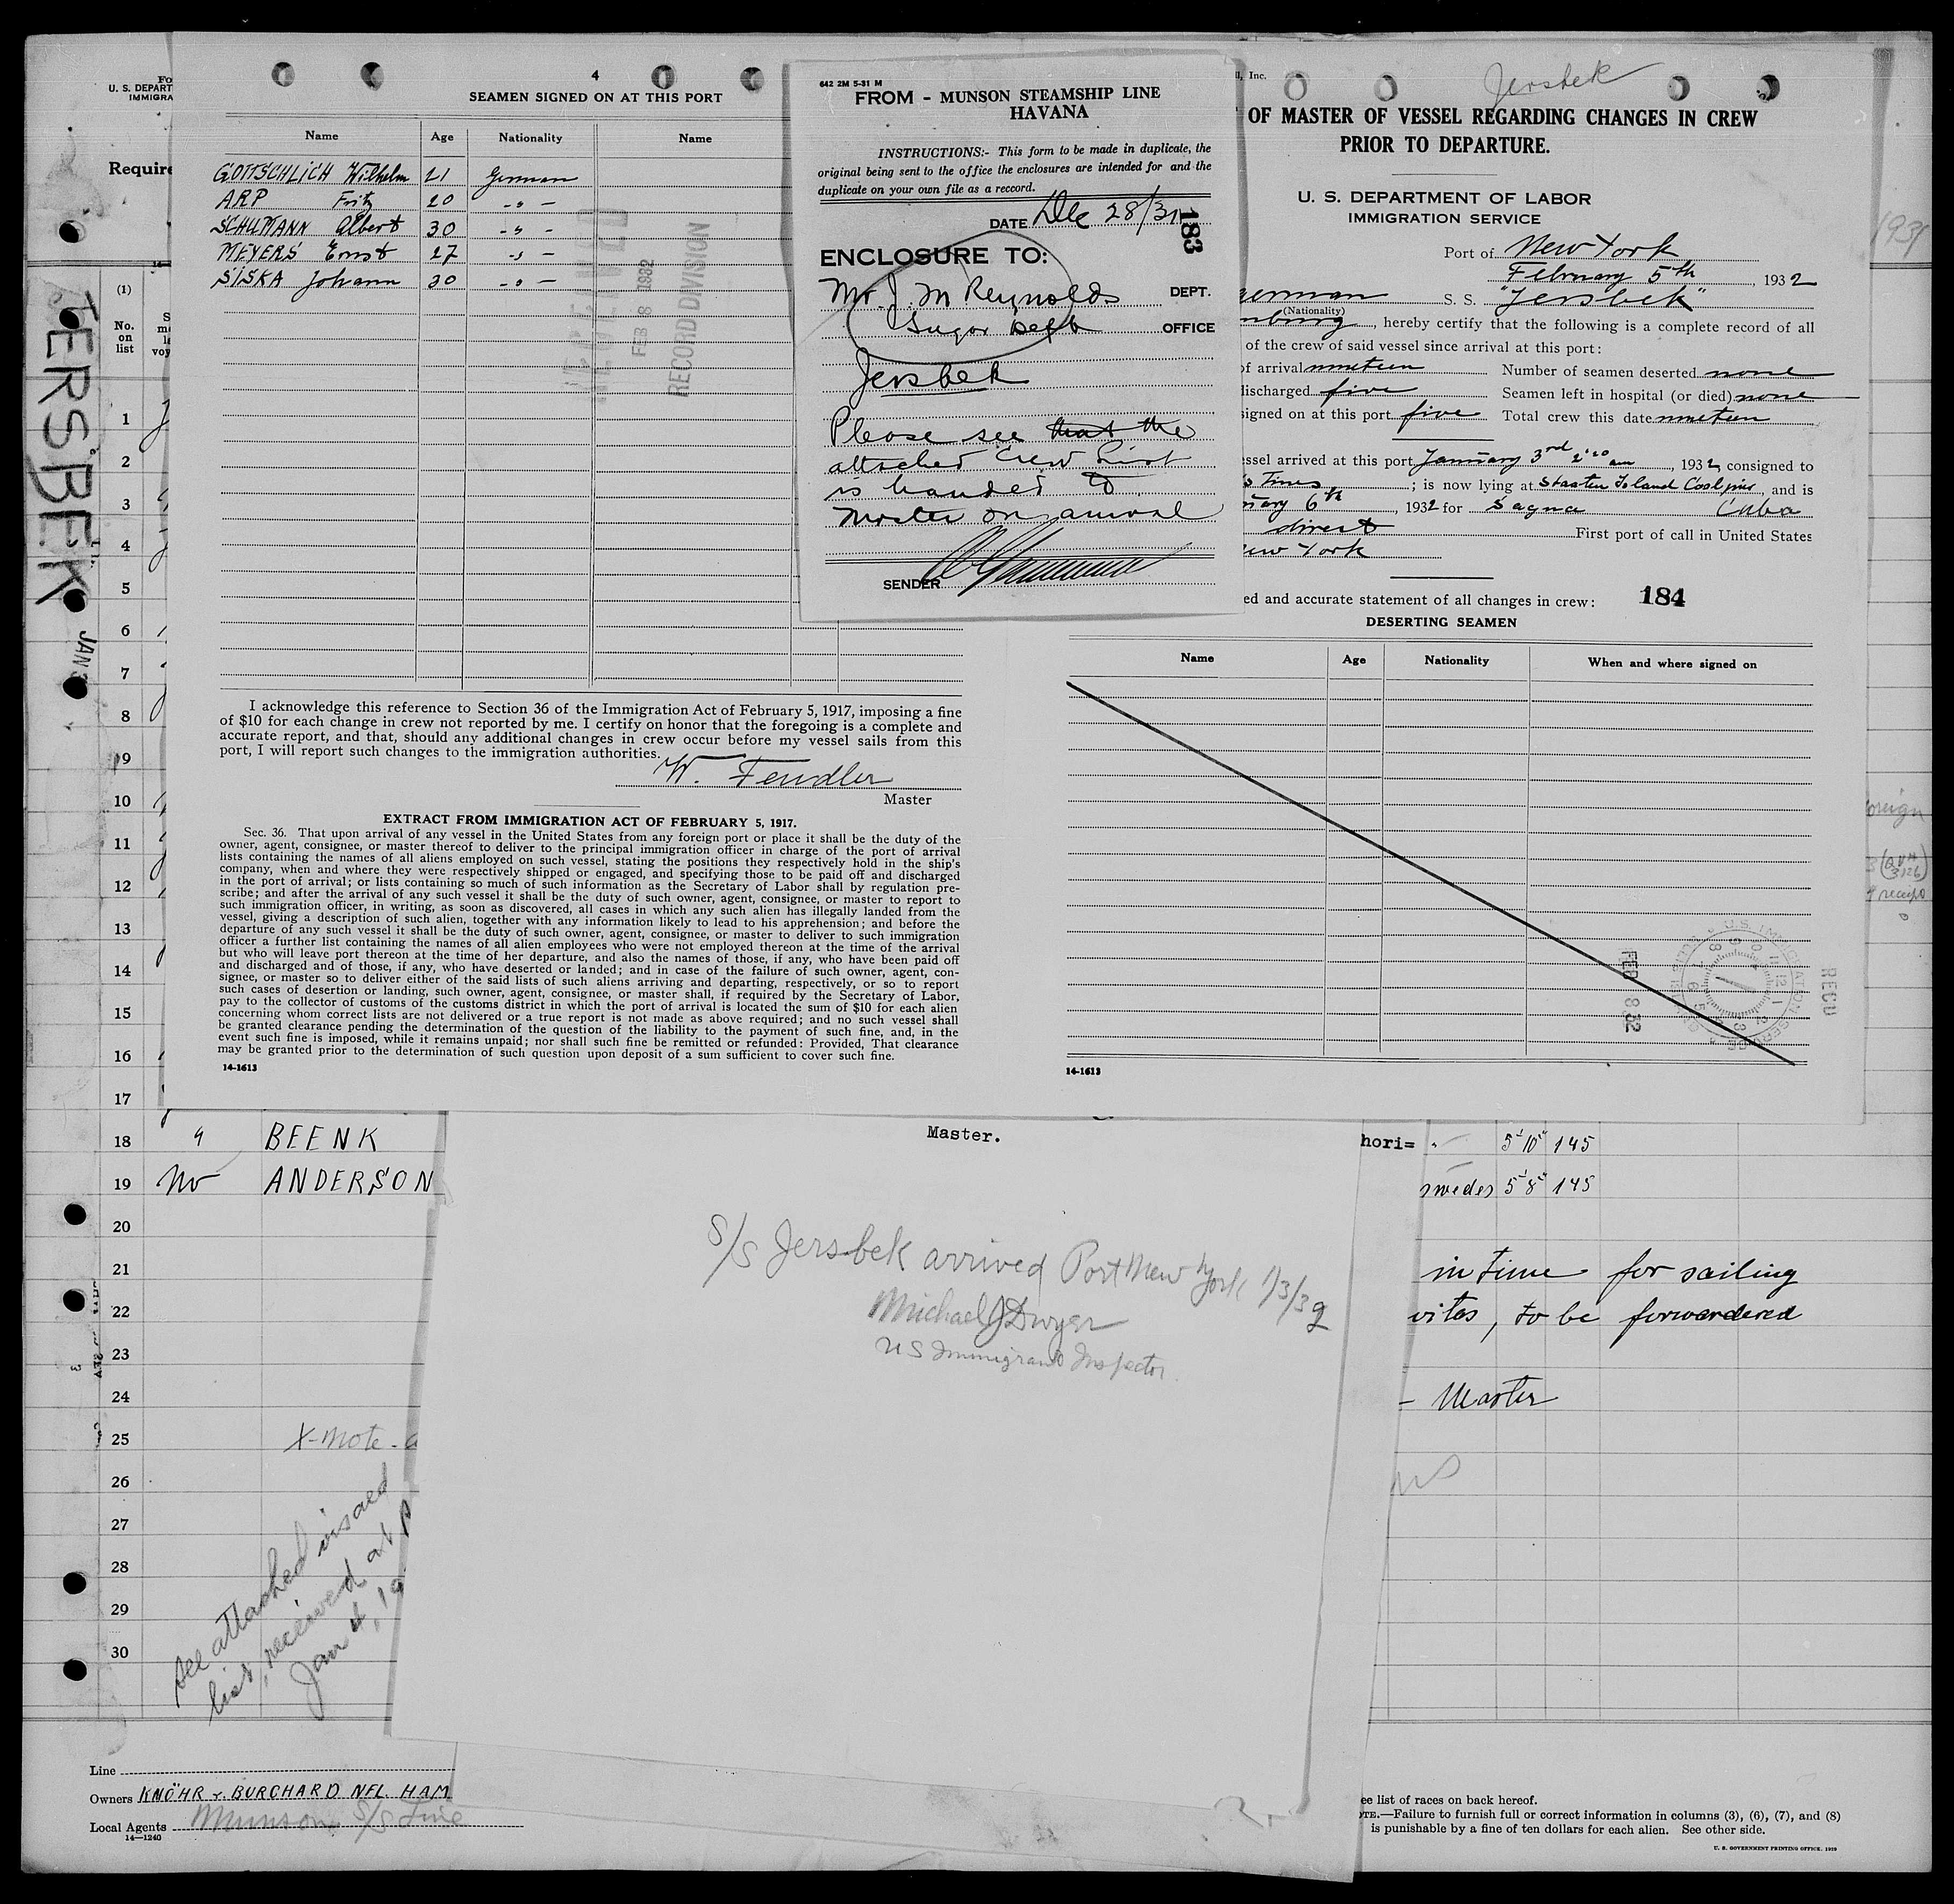 4
SEAMEN SIGNED ON AT THIS PORT
Name Age Nationality Name
GOTTSCHLICH Wilhelm 21 German
ARP Fritz 20 -"-
SCHUMANN Albert 30 -"-
MEYERS Ernst 27 -"-
SISKA Johann 30 -"-
FEB 8 1932
RECORD DIVISION
I acknowledge this reference to Section 36 of the Immigration Act of February 5, 1917, imposing a fine
of $10 for each change in crew not reported by me. I certify on honor that the foregoing is a complete and
accurate report, and that, should any additional changes in crew occur before my vessel sails from this
port, I will report such changes to the immigration authorities.
W. Fendler
Master
EXTRACT FROM IMMIGRATION ACT OF FEBRUARY 5, 1917.
Sec. 36. That upon arrival of any vessel in the United States from any foreign port or place it shall be the duty of the
owner, agent, consignee, or master thereof to deliver to the principal immigration officer in charge of the port of arrival
lists containing the names of all aliens employed on such vessel, stating the positions they respectively hold in the ship's
company, when and where they were respectively shipped or engaged, and specifying those to be paid off and discharged
in the port of arrival; or lists containing so much of such information as the Secretary of Labor shall by regulation pre-
scribe; and after the arrival of any such vessel it shall be the duty of such owner, agent, consignee, or master to report to
such immigration officer, in writing, as soon as discovered, all cases in which any such alien has illegally landed from the
vessel, giving a description of such alien, together with any information likely to lead to his apprehension; and before the
departure of any such vessel it shall be the duty of such owner, agent, consignee, or master to deliver to such immigration
officer a further list containing the names of all alien employees who were not employed thereon at the time of the arrival
but who will leave port thereon at the time of her departure, and also the names of those, if any, who have been paid off
and discharged and of those, if any, who have deserted or landed; and in case of the failure of such owner, agent, con-
signee, or master so to deliver either of the said lists of such aliens arriving and departing, respectively, or so to report
such cases of desertion or landing, such owner, agent, consignee, or master shall, if required by the Secretary of Labor,
pay to the collector of customs of the customs district in which the port of arrival is located the sum of $10 for each alien
concerning whom correct lists are not delivered or a true report is not made as above required; and no such vessel shall
be granted clearance pending the determination of the question of the liability to the payment of such fine, and, in the
event such fine is imposed, while it remains unpaid; nor shall such fine be remitted or refunded: Provided, That clearance
may be granted prior to the determination of such question upon deposit of a sum sufficient to cover such fine.
14-1613
642 2M 5-31 M
FROM - MUNSON STEAMSHIP LINE
HAVANA
INSTRUCTIONS:- This form to be made in duplicate, the
original being sent to the office the enclosures are intended for and the
duplicate on your own file as a record.
DATE Dec 28/31
183
ENCLOSURE TO:
Mr. J. M Reynolds DEPT.
Sugar Dept OFFICE
Jersbek
Please see that the
attached Crew List
is handed to
Master on arrival
SENDER
, Inc.
Jersbek
OF MASTER OF VESSEL REGARDING CHANGES IN CREW
PRIOR TO DEPARTURE.
U. S. DEPARTMENT OF LABOR
IMMIGRATION SERVICE
Port of New York
February 5th, 1932
erman S. S. "Jersbek"
(Nationality)
mburg, hereby certify that the following is a complete record of all
of the crew of said vessel since arrival at this port:
of arrival nineteen Number of seamen deserted none
discharged five Seamen left in hospital (or died) none
signed on at this port five Total crew this date nineteen
essel arrived at this port January 3rd 2:20 am, 1932, consigned to
; is now lying at Staaten Island Coalpier, and is
uary 6th, 1932 for Sagua Cuba
direct First port of call in United States
ew York
ed and accurate statement of all changes in crew: 184
DESERTING SEAMEN
Name Age Nationality When and where signed on
FEB 8 32
U.S. IMMIGRATION SERVICE
14-1613
U. S. DEPART
IMMIGRA
Require
JERSBEK
JAN 3
(1)
No.
on
list
1
2
3
4
5
6
7
8
9
10
11
12
13
14
15
16
17
18 " BEENK hori= 5'10" 145
19 No ANDERSON swedes 5'8" 145
20
21
22
23
24
25
26
27
28
29
30
Master.
S/S Jersbek arrived Port New York 1/3/32
Michael J Dwyer
US Immigrant Inspector
in time for sailing
, to be forwardered
- Master
X-Note-
See attached
list, received at
Jan 4, 19
Line
Owners KNÖHR & BURCHARD NFL. HAM
Local Agents Munson S/S Line
14-1240
ee list of races on back hereof.
TE.—Failure to furnish full or correct information in columns (3), (6), (7), and (8)
is punishable by a fine of ten dollars for each alien. See other side.
U. S. GOVERNMENT PRINTING OFFICE. 1929